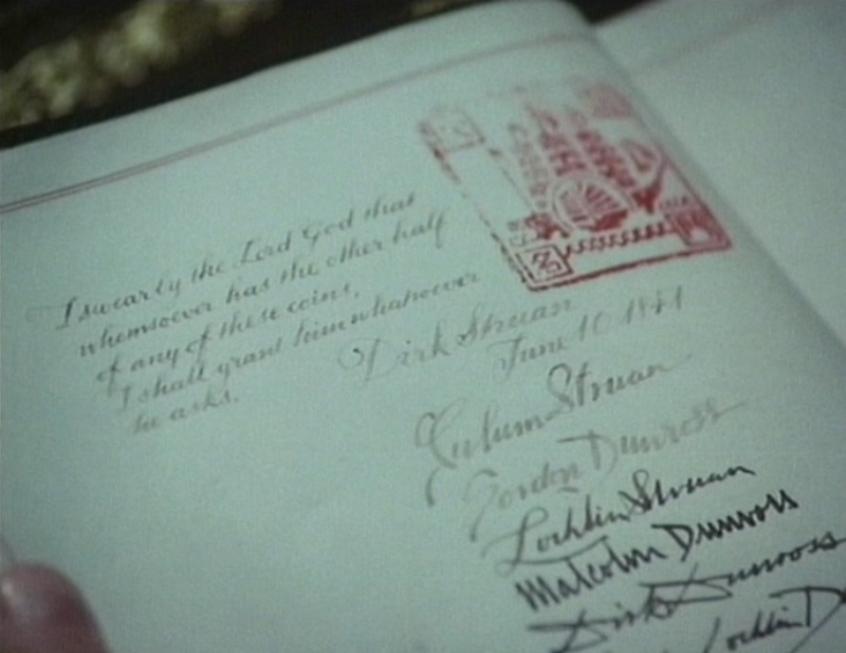 I swear by the Lord God that
whomsoever has the other half
of any of these coins,
I shall grant him whatsoever
he asks.
Dirk Struan
June 10 1841
Culum Struan
Gordon Dunross
Lochlin Struan
Malcolm Dunross
Dirk Dunross
Lochlin D